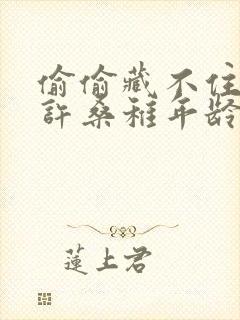 偷偷藏不住
許桑稚年龄
蓮上君